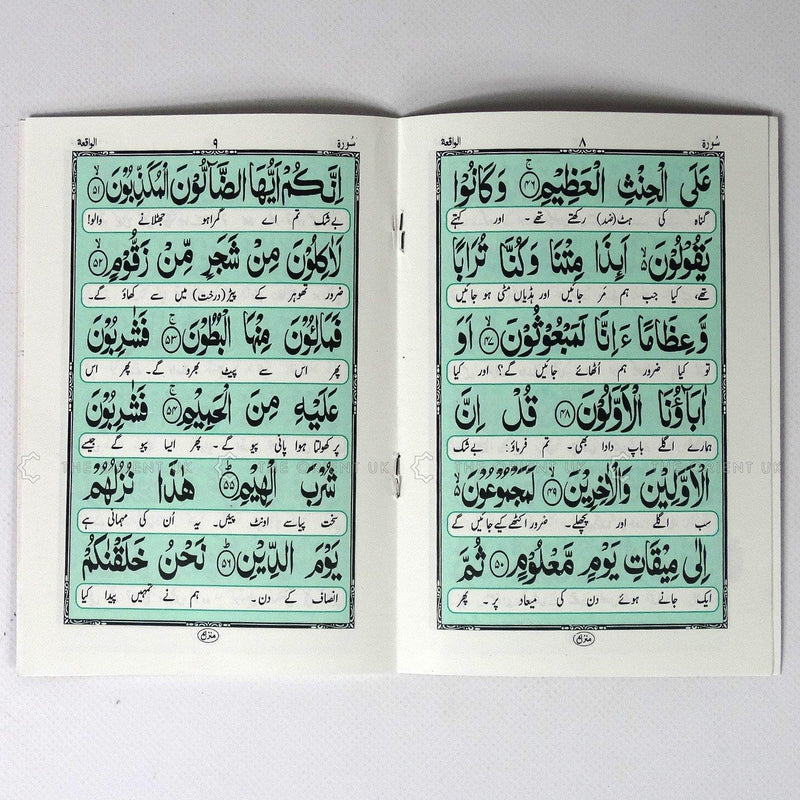 سُورة ٨ الواقعة
عَلَى الْحِنْثِ الْعَظِيْمِ ۚ ﴿۴۶﴾ وَكَانُوْا
گناہ کی ہٹ (ضد) رکھتے تھے۔ اور کہتے
يَقُوْلُوْنَ ۙ اَىِٕذَا مِتْنَا وَكُنَّا تُرَابًا
تھے، کیا جب ہم مَر جائیں اور ہڈیاں مٹی ہو جائیں
وَّعِظَامًا ءَاِنَّا لَمَبْعُوْثُوْنَ ۙ ﴿۴۷﴾ اَوَ
تو کیا ضرور ہم اُٹھائے جائیں گے؟ اور کیا
اٰبَآؤُنَا الْاَوَّلُوْنَ ﴿۴۸﴾ قُلْ اِنَّ
ہمارے اگلے باپ دادا بھی۔ تم فرماؤ: بےشک
الْاَوَّلِيْنَ وَالْاٰخِرِيْنَ ۙ ﴿۴۹﴾ لَمَجْمُوْعُوْنَ ۙ
سب اگلے اور پچھلے۔ ضرور اکٹھے کیے جائیں گے
اِلٰى مِيْقَاتِ يَوْمٍ مَّعْلُوْمٍ ﴿۵۰﴾ ثُمَّ
ایک جانے ہوئے دن کی میعاد پر۔ پھر
منزل
سُورة ٩ الواقعة
اِنَّكُمْ اَيُّهَا الضَّآلُّوْنَ الْمُكَذِّبُوْنَ ۙ ﴿۵۱﴾
بےشک تم اے گمراہو جھٹلانے والو!
لَاٰكِلُوْنَ مِنْ شَجَرٍ مِّنْ زَقُّوْمٍ ۙ ﴿۵۲﴾
ضرور تھوہر کے پیڑ (درخت) میں سے کھاؤ گے۔
فَمَالِئُوْنَ مِنْهَا الْبُطُوْنَ ۚ ﴿۵۳﴾ فَشٰرِبُوْنَ
پھر اس سے پیٹ بھرو گے۔ پھر اس
عَلَيْهِ مِنَ الْحَمِيْمِ ۚ ﴿۵۴﴾ فَشٰرِبُوْنَ
پر کھولتا ہوا پانی پیو گے۔ پھر ایسا پیو گے جیسے
شُرْبَ الْهِيْمِ ؕ ﴿۵۵﴾ هٰذَا نُزُلُهُمْ
سخت پیاسے اونٹ پئیں۔ یہ اُن کی مہمانی ہے
يَوْمَ الدِّيْنِ ؕ ﴿۵۶﴾ نَحْنُ خَلَقْنٰكُمْ
انصاف کے دن۔ ہم نے تمہیں پیدا کیا
منزل
THE ORIENT UK THE ORIENT UK THE ORIENT UK